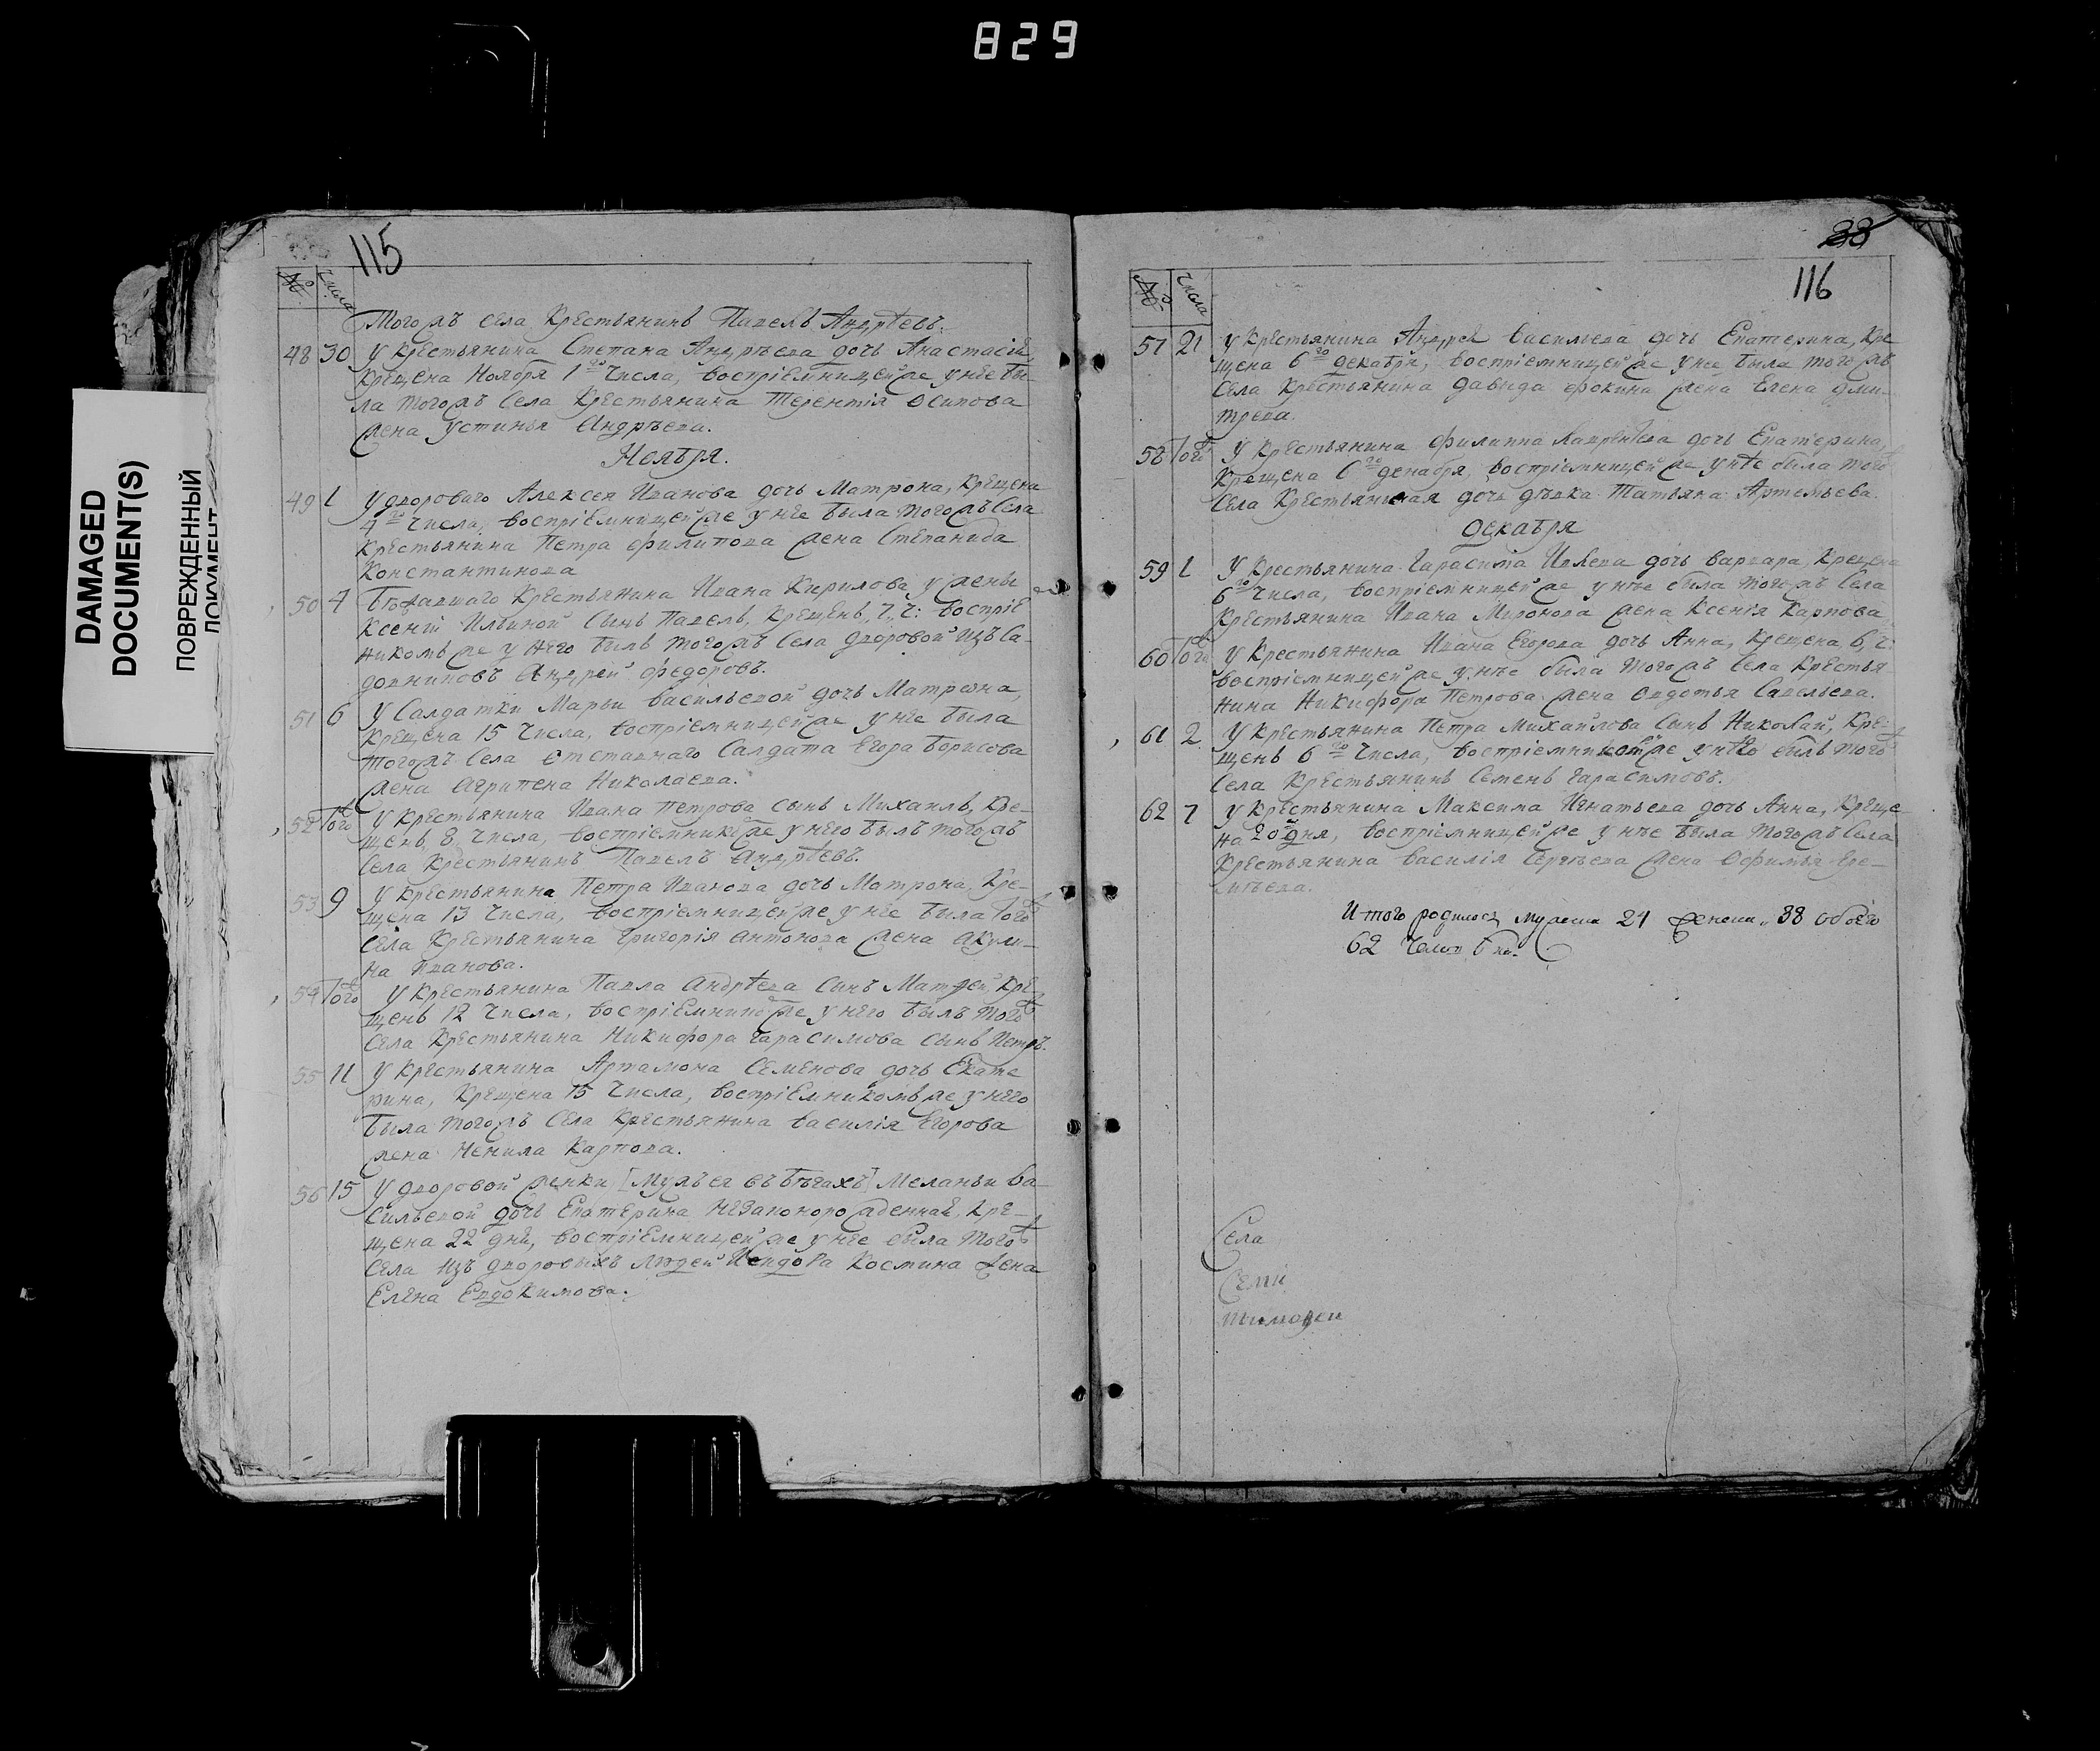 829
DAMAGED
DOCUMENT(S)
ПОВРЕЖДЕННЫЙ
ДОКУМЕНТ
115
№ Числа
Тогожъ села Крестьянинъ Павелъ Андрѣевъ.
48 30 У Крестьянина Степана Андрѣева дочь Анастасія,
Крещена Ноября 1го Числа, воспріемницей же у нее бы-
ла тогожъ Села Крестьянина Терентія Осипова
жена Устинья Андрѣева.
Ноября.
49 1 У двороваго Алексея Иванова дочь Матрона, Крещена
4го Числа, воспріемницей же у нее была тогожъ Села
Крестьянина Петра Филипова жена Степанида
Константинова
50 4 Бѣжавшаго Крестьянина Ивана Кирилова у жены
Ксеніи Ильиной Сынъ Павелъ, Крещенъ 7 ч: воспріе
никомъ же у него былъ тогожъ Села дворовой изъ Са-
довниковъ Андрей Федоровъ.
51 6 У Салдатки Марьи Васильевой дочь Матрона,
Крещена 15 Числа, воспріемницей же у нее была
тогожъ Села отставнаго Салдата Егора Борисова
жена Агрипена Николаева.
52 Того У Крестьянина Ивана Петрова сынъ Михаилъ, Кре-
щенъ 8 Числа, воспріемникомъ же у него былъ тогожъ
Села Крестьянинъ Павелъ Андрѣевъ.
53 9 У Крестьянина Петра Иванова дочь Матрона, Кре-
щена 13 Числа, воспріемницей же у нее была Того
Села Крестьянина Григорія Антонова жена Акули-
на Иванова.
54 Того У Крестьянина Павла Андрѣева Сынъ Матвей, Кре-
щенъ 12 Числа, воспріемникомъ же у него былъ того
Села Крестьянина Никифора Гарасимова Сынъ Петръ.
55 11 У Крестьянина Артамона Семенова дочь Екате
рина, Крещена 15 Числа, воспріемникомъ же у него
была тогожъ Села Крестьянина Василія Егорова
жена Ненила Карпова.
56 15 У дворовой женки [мужъ ея въ бѣгахъ] Меланьи Ва-
сильевой дочь Екатерина незаконорожденная, Кре-
щена 22 дня, воспріемницей же у нее была того
Села изъ дворовыхъ людей Косmина жена
Елена Евдокимова.
38
116
№ Числа
57 21 У Крестьянина Андрея Васильева дочь Екатерина, Кре
щена 6го декабря, воспріемницей же у нее была тогожъ
Села Крестьянина Давыда Фокина жена Елена Дми-
трева.
58 Того У Крестьянина Филиппа Лаврентева дочь Екатерина,
Крещена 6го декабря, воспріемницей же у нѣе была того
Села Крестьянская дочь дѣвка Татьяна Артемьева.
Декабря
59 1 У Крестьянина Гарасима Ивлева дочь Варвара, Крещена
6го Числа, воспріемницей же у нѣе была тогожъ Села
Крестьянина Ивана Миронова жена Ксенія Карпова
60 Того У Крестьянина Ивана Егорова дочь Анна, Крещена 6, ч:
воспріемницей же у нѣе была тогожъ Села Крестья
нина Никифора Петрова жена Овдотья Савельева.
61 2 У Крестьянина Петра Михайлова Сынъ Николай, Кре-
щенъ 6го Числа, воспріемникомъ же у него былъ того
Села Крестьянинъ Семенъ Гарасимовъ.
62 7 У Крестьянина Максима Игнатьева дочь Анна, Креще-
на 20 дня, воспріемницей же у нѣе была тогожъ Села
Крестьянина Василія Сергѣева жена Офимья Ере-
Итого родилось мужеска 24 женска 38 обоего
62
Села
Семи
Тимофеи